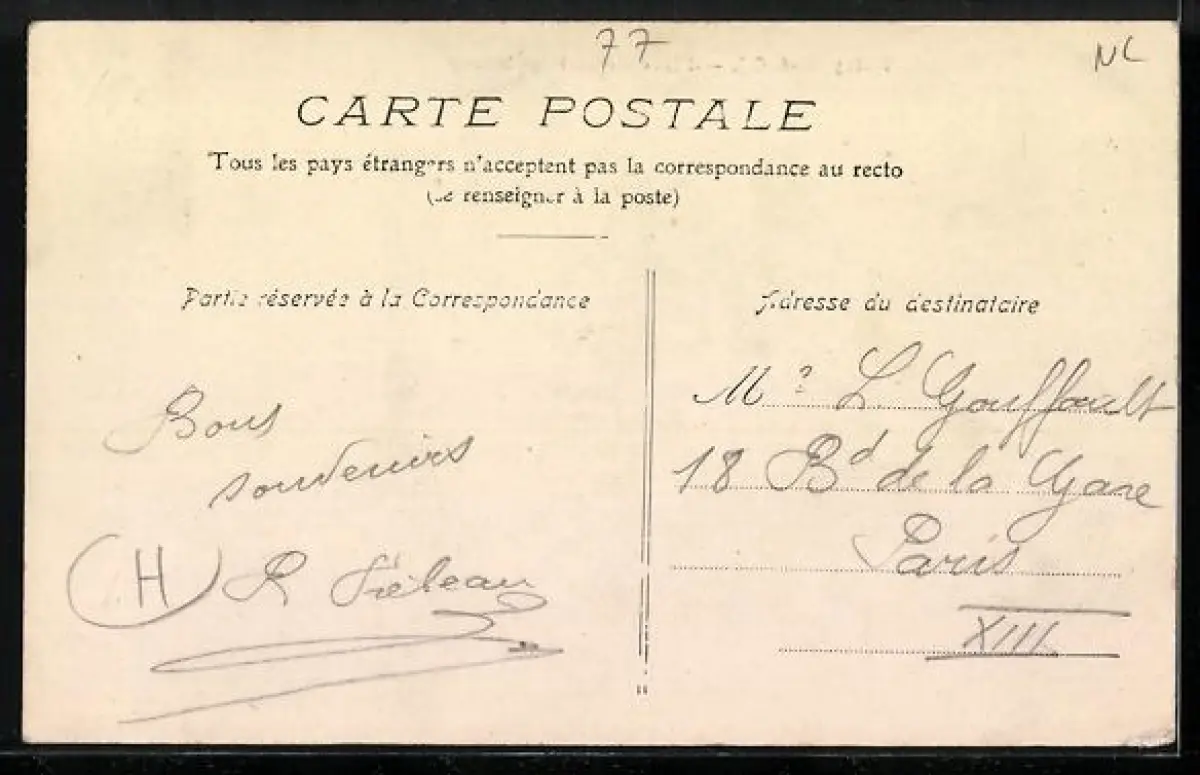 77
NL
CARTE POSTALE
Tous les pays étrangers n'acceptent pas la correspondance au recto
(Se renseigner à la poste)
Partie réservée à la Correspondance
Adresse du destinataire
Bons
souvenirs
H R
Mr L. Gouffault
18 Bd de la Gare
Paris
XIII